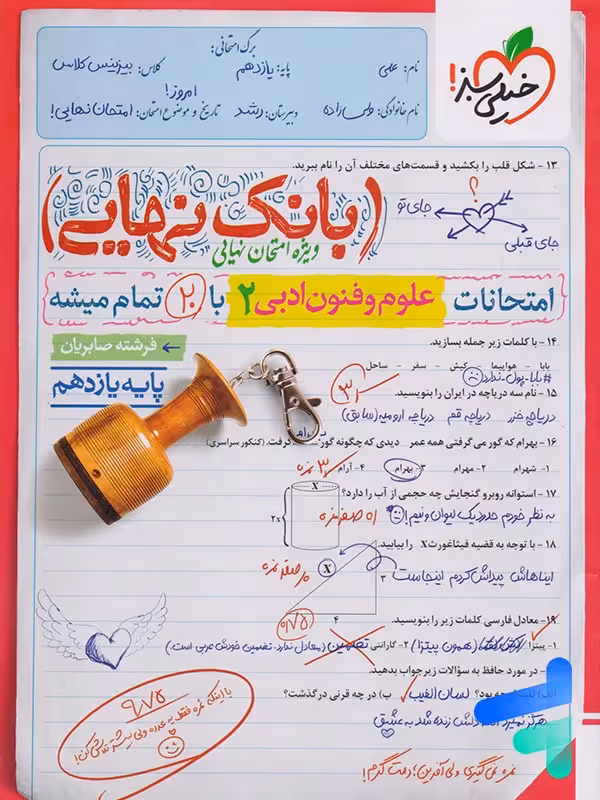 خیلی سبز!
برگ امتحانی:
نام: علی
پایه: یازدهم
کلاس: بیزینس کلاس
امروز!
نام خانوادگی: ولی‌زاده
دبیرستان: رشد
تاریخ و موضوع امتحان: امتحان نهایی!
۱۳ - شکل قلب را بکشید و قسمت‌های مختلف آن را نام ببرید.
؟
جای تو
جای قبلی
(بانک نهایی)
ویژه امتحان نهایی
امتحانات علوم و فنون ادبی ۲ با ۲۰ تمام میشه
فرشته صابریان
پایه یازدهم
۱۴ - با کلمات زیر جمله بسازید.
بابا - هواپیما - کیش - سفر - ساحل
#بابا-پول-ندارد
۱۵ - نام سه دریاچه در ایران را بنویسید.
دریاچه خزر دریاچه قم دریاچه ارومیه (سابق)
۱۶ - بهرام که گور می‌گرفتی همه عمر دیدی که چگونه گور گرفت. (کنکور سراسری)
بهرام
۱- شهرام ۲- مهرام ۳- بهرام ۴- آرام
۳ نمره
۱۷ - استوانه روبرو گنجایش چه حجمی از آب را دارد؟
X
2X
به نظر خودم حدود یک لیوان و نیم!
۱۸ - با توجه به قضیه فیثاغورث X را بیابید.
ایناهاش پیداش کردم اینجاست
X
۳
۴
۰/۷۵
۱۹- معادل فارسی کلمات زیر را بنویسید.
۱- پیتزا (همون پیتزا) ۲- گارانتی تضمین (معادل ندارد. تضمین خودش عربی است.)
در مورد حافظ به سؤالات زیر جواب بدهید.
بود؟ لسان الغیب ب) در چه قرنی در گذشت؟
هرگز نمیرد آنکه دلش زنده شد به عشق
۹/۷۵
نمره نمی‌گیری ولی آفرین؛ دمت گرم!